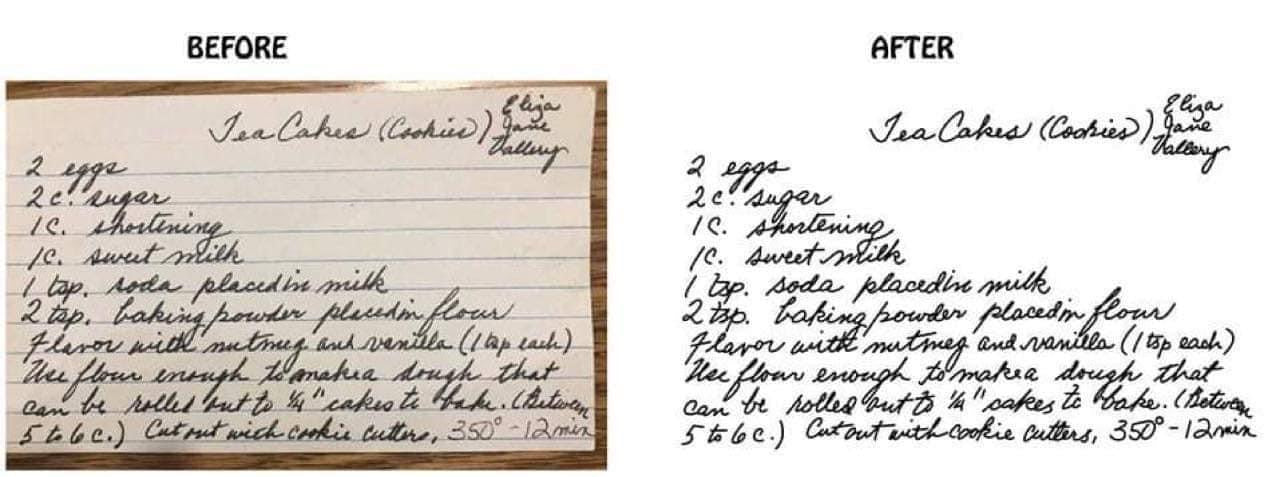 BEFORE
Tea Cakes (Cookies) Eliza
Jane
Vallery
2 eggs
2 c. sugar
1 C. shortening
1C. sweet milk
1 tsp. soda placed in milk
2 tsp. baking powder placed in flour
Flavor with nutmeg and vanilla (1 tsp each)
Use flour enough to make a dough that
can be rolled out to 1/4" cakes to bake. (Between
5 to 6 c.) Cut out with cookie cutters, 350° - 12 min
AFTER
Tea Cakes (Cookies) Eliza
Jane
Vallery
2 eggs
2 c. sugar
1 C. shortening
1C. sweet milk
1 tsp. soda placed in milk
2 tsp. baking powder placed in flour
Flavor with nutmeg and vanilla (1 tsp each)
Use flour enough to make a dough that
can be rolled out to 1/4" cakes to bake. (Between
5 to 6 c.) Cut out with cookie cutters, 350° - 12 min